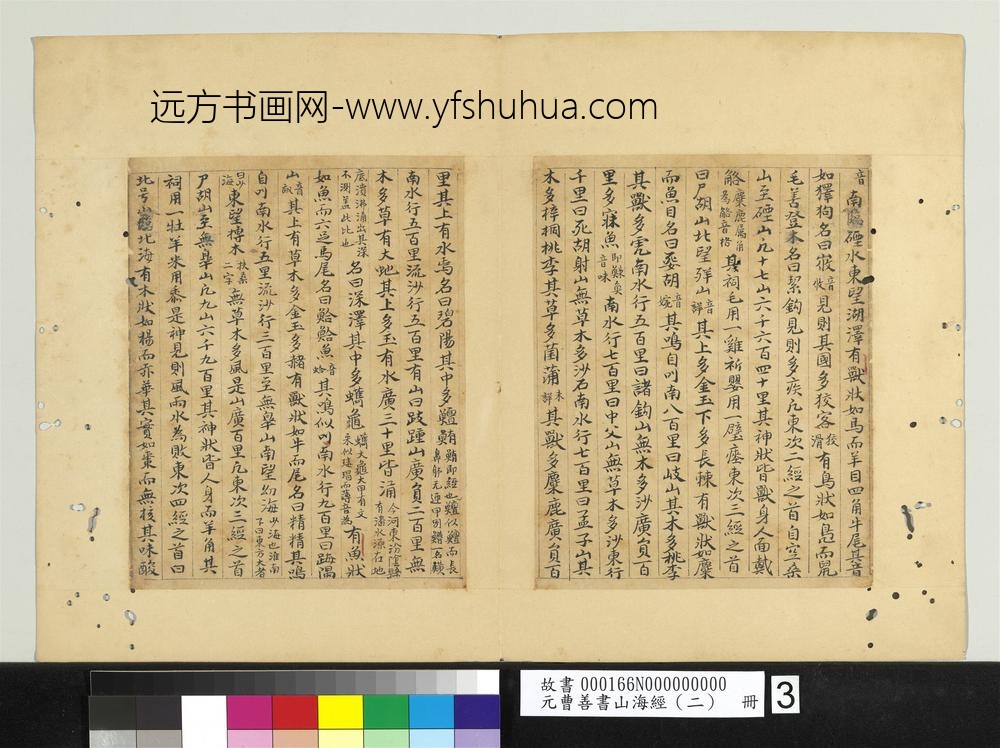 远方书画网-www.yfshuhua.com
音南臨䃌水東望湖澤有獸狀如馬而羊目四角牛尾其音
如獋狗名曰峳音攸見則其國多狡客狡滑有鳥狀如鳧而鼠
毛善登木名曰絜鉤見則多疾凡東次二經之首自空桑
山至䃌山凡十七山六千六百四十里其神狀皆獸身人面戴
觡麋鹿屬角為觡音格其祠毛用一雞祈嬰用一璧瘞東次三經之首
曰尸胡山北望䍧山音詳其上多金玉下多長棘有獸狀如麋
而魚目名曰妴胡音婉其鳴自叫南八百里曰岐山其木多桃李
其獸多虎南水行五百里曰諸鉤山無木多沙廣員百
里多寐魚即鮇魚音味南水行七百里曰中父山無草木多沙東行
千里曰死胡射山無草木多沙石南水行七百里曰孟子山其
木多梓桐桃李其草多菌蒲未詳其獸多麋鹿廣員百
里其上有水焉名曰碧陽其中多鱣鮪鮪即鱏也鱣似鱣而長鼻體無連甲別鱣名䱭
南水行五百里流沙行五百里有山曰跂踵山廣員二百里無
木多草有大虵其上多玉有水廣三十里皆涌今河東汾陰縣有瀵水源在地
底濆沸涌出其深不測蓋此比也名曰深澤其中多蠵龜蠵大龜大甲有文采似瑇瑁而薄音為有魚狀
如魚而六足馬尾名曰鮯鮯魚音蛤其鳴似叫南水行九百里曰踇隅
山音敏其上有草木多金玉多赭有獸狀如牛而尾名曰精精其鳴
自叫南水行五里流沙行三百里至無皋山南望幼海少海也淮南子曰東方大者
曰少海東望榑木扶桑二字無草木多風是山廣百里凡東次三經之首
尸胡山至無皋山凡九山六千九百里其神狀皆人身而羊角其
祠用一牡羊米用黍是神見則風雨水為敗東次四經之首曰
北号山臨北海有木狀如楊而赤華其實如棗而無核其味酸
故書 000166N000000000
元曹善書山海經(二) 冊 3